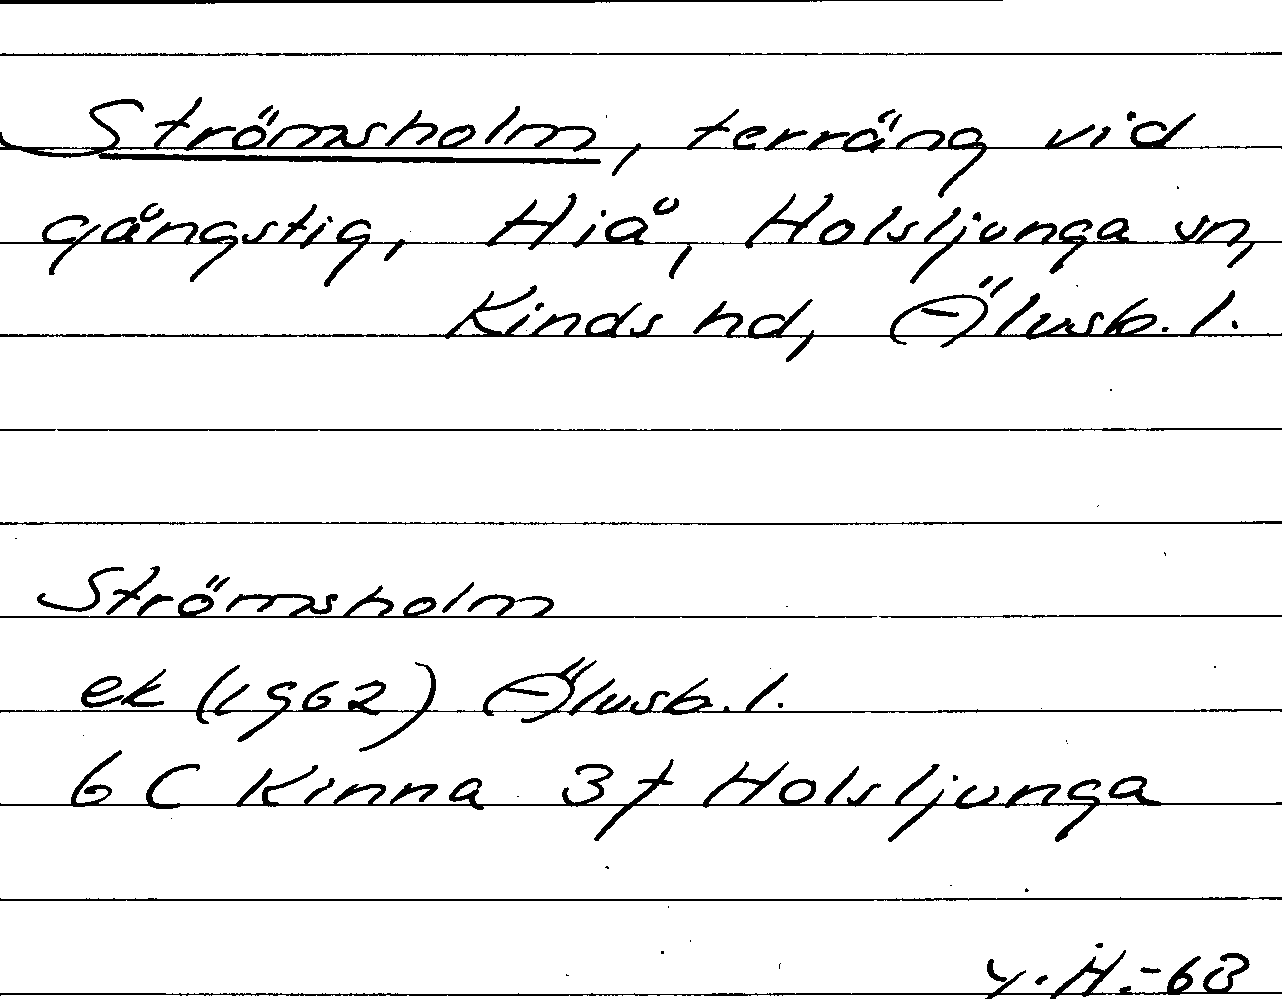 Strömsholm, terräng vid
gångstig, Hiå, Holsljunga sn,
Kinds hd, Älvsb. l.
Strömsholm
ek (1962) Älvsb. l.
6 C Kinna 3f Holsljunga
Y. H. -68